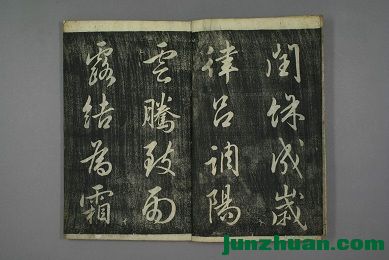 閏餘成歲
律呂調陽
雲騰致雨
露結為霜
junzhuan.com